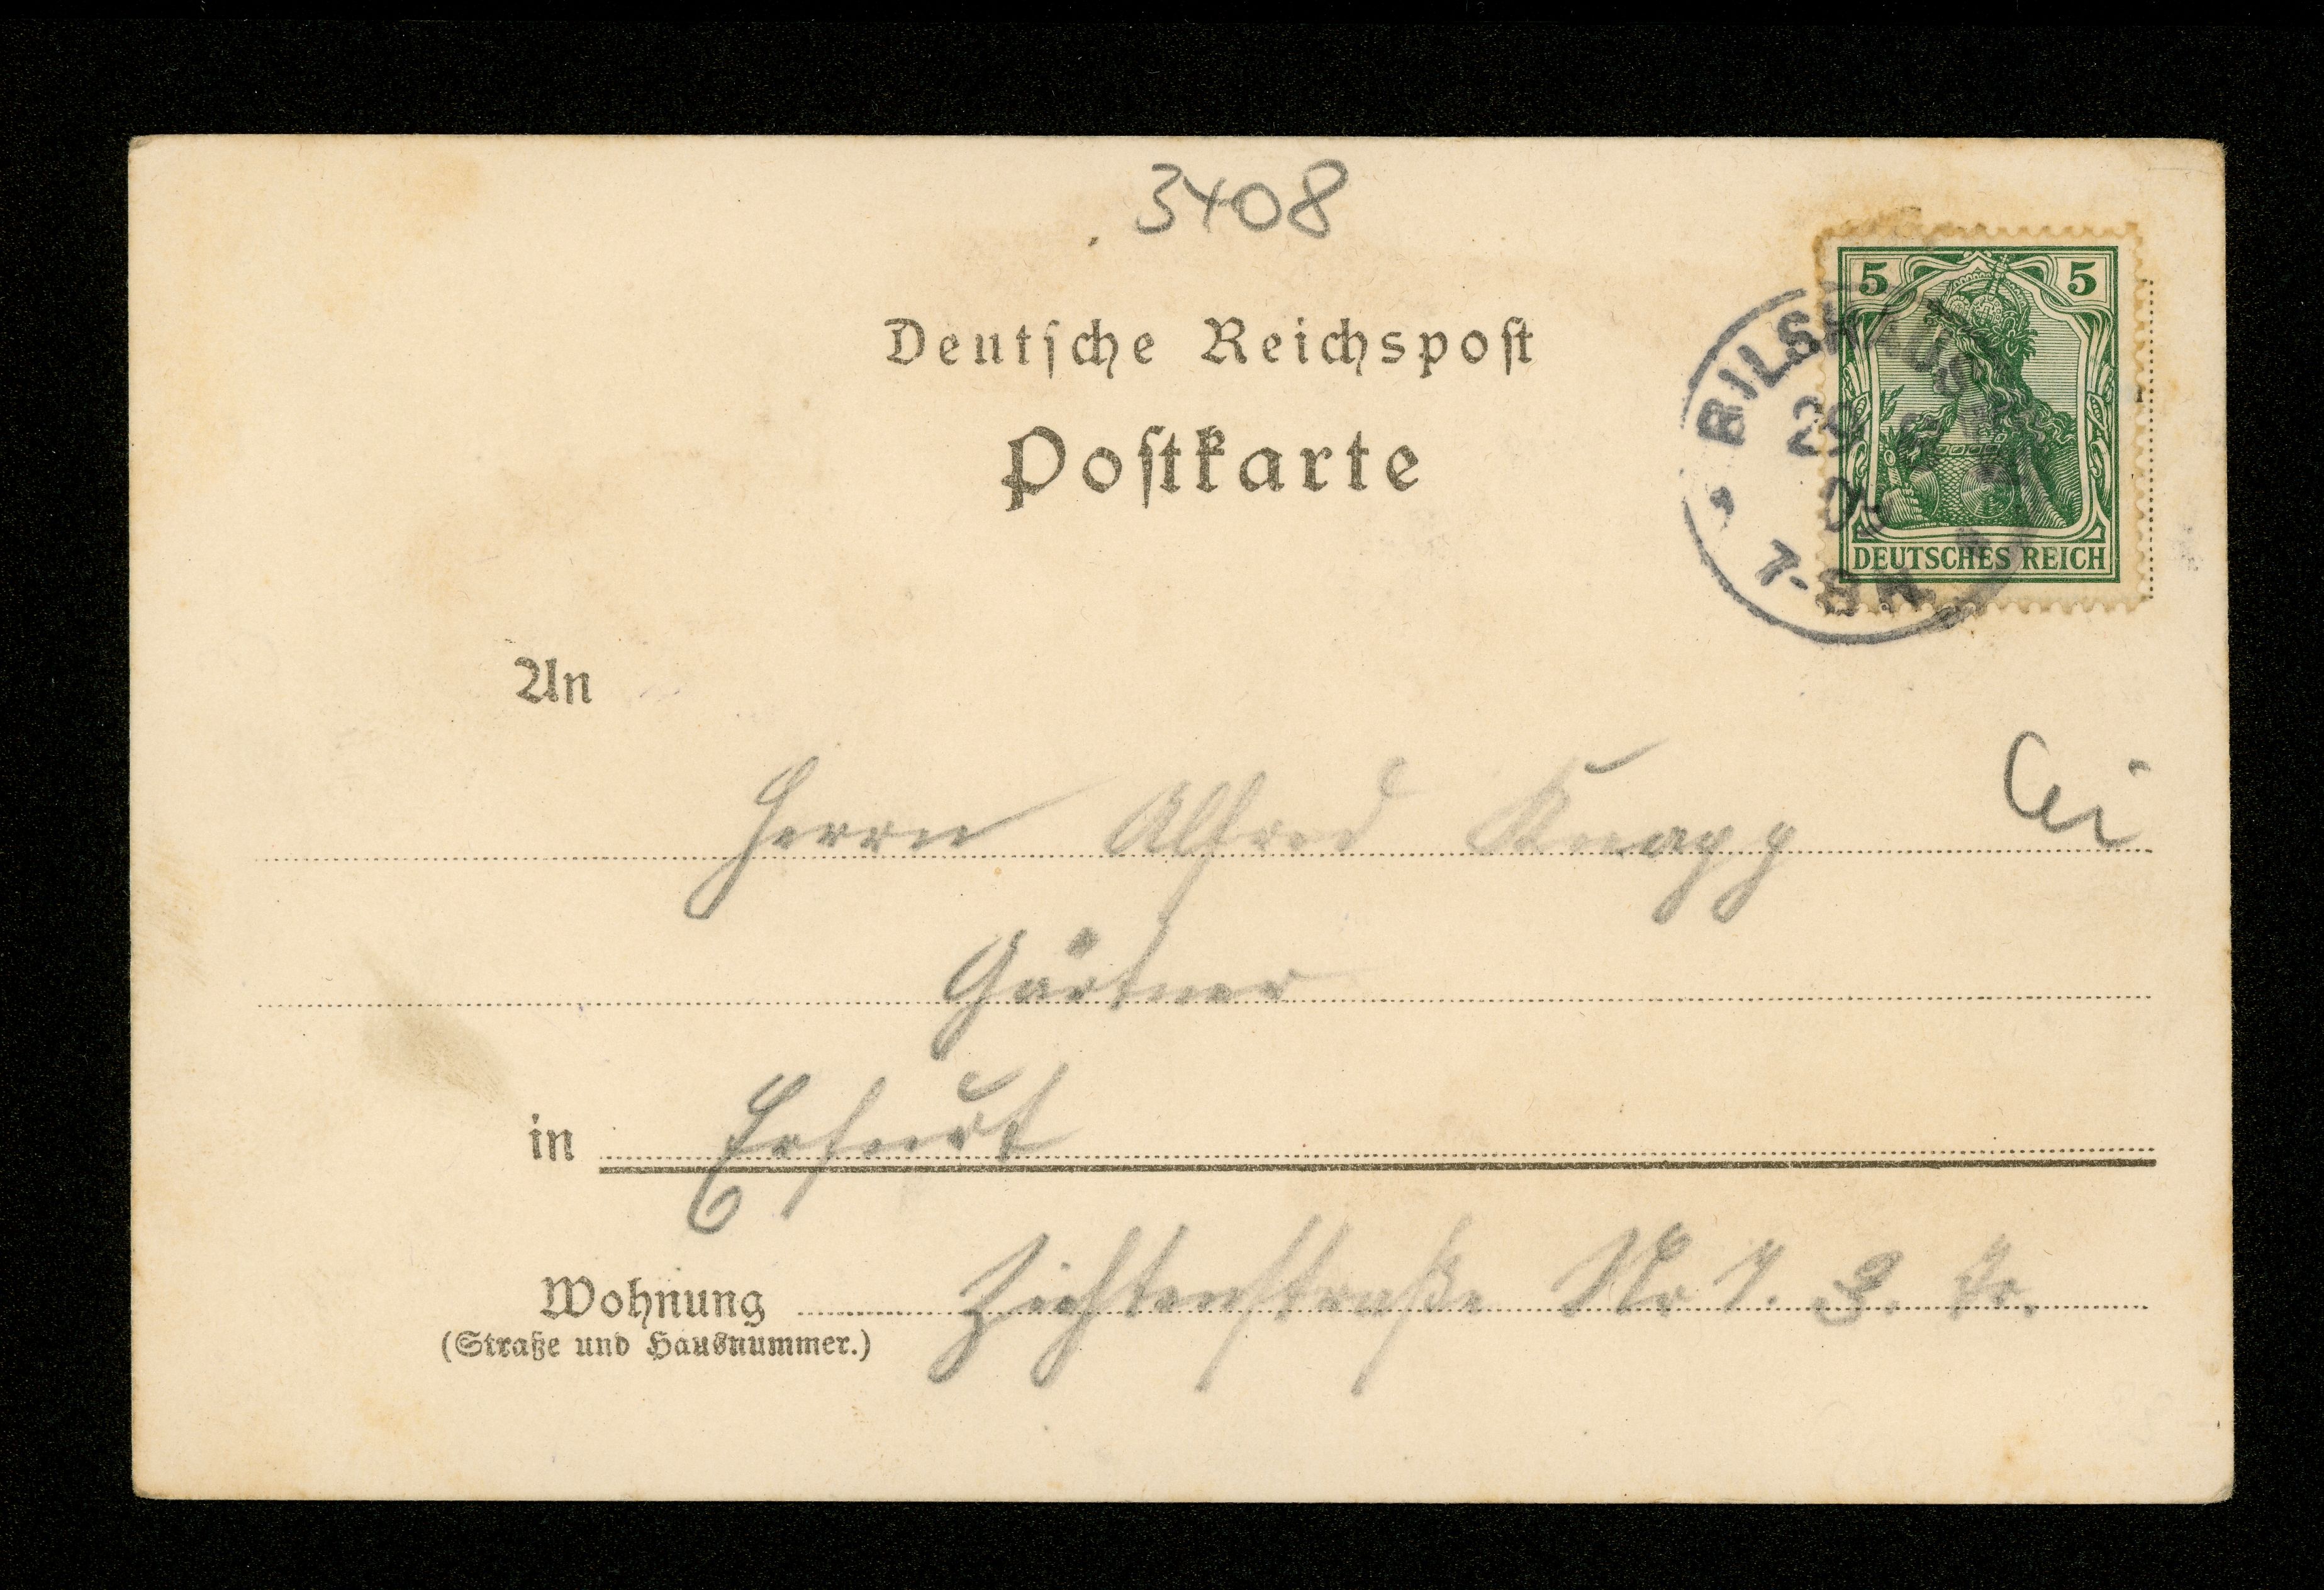 3408
Deutsche Reichspost
Postkarte
5 5
DEUTSCHES REICH
BILSHAUSEN
29
7-8 N
An
Herrn Alfred Knapp
Gärtner
in Erfurt
Wohnung
(Straße und Hausnummer.)
Nr 7. 3. Tr.